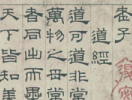 老子
道經
道可道非常
萬物之母常
者同出而異
天下皆知美